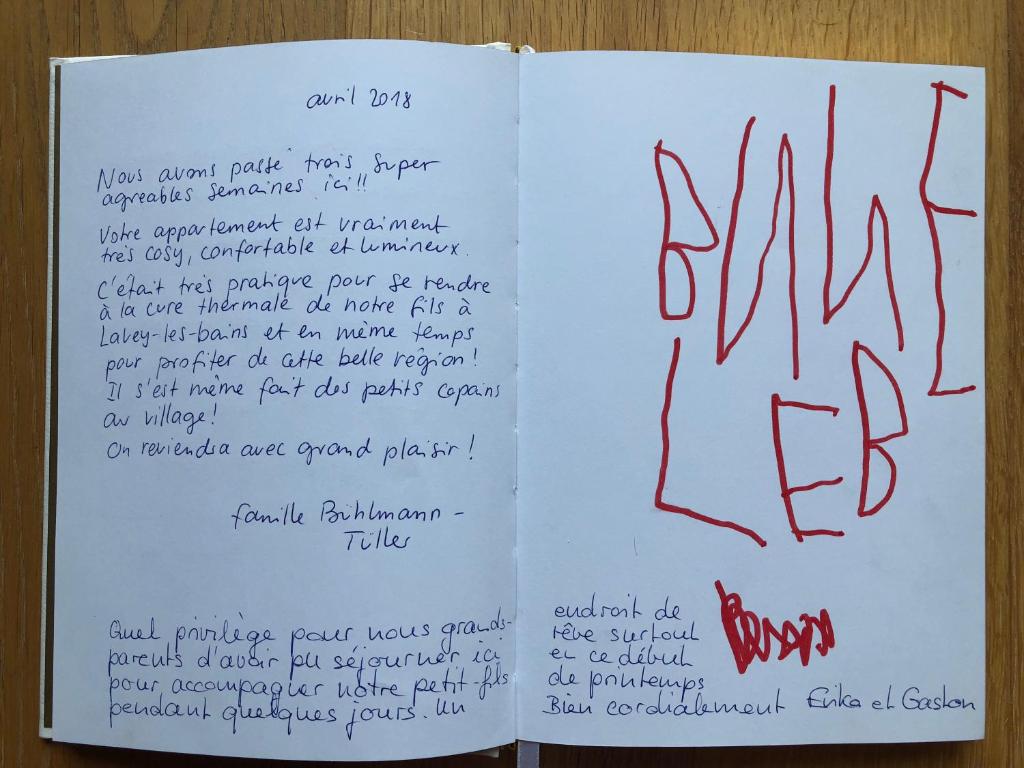 avril 2018
Nous avons passé trois super
agreables semaines ici!!
Votre appartement est vraiment
très cosy, confortable et lumineux.
C'était très pratique pour se rendre
à la cure thermale de notre fils à
Lavey-les-bains et en même temps
pour profiter de cette belle région!
Il s'est même fait des petits copains
au village!
On reviendra avec grand plaisir!
famille Bühlmann-
Tüller
Quel privilège pour nous grands-
parents d'avoir pu séjourner ici
pour accompagner notre petit-fils
pendant quelques jours. Un
BNNE
LEB
endroit de
rêve surtout
en ce début
de printemps
Bien cordialement Erika et Gaston